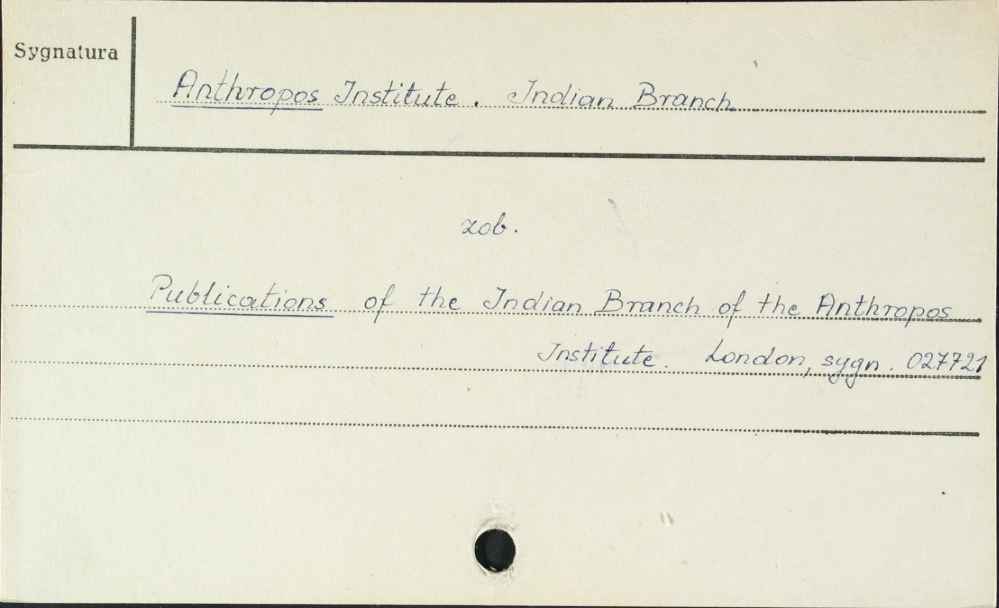 Sygnatura
Anthropos Institute. Indian Branch
zob.
Publications of the Indian Branch of the Anthropos
Institute. London, sygn. 027721